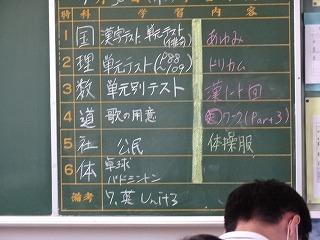 時 科 学 習 内 容
1 国 漢字テスト 単元テスト あゆみ
2 理 単元テスト (P88~P109) ドリカム
3 数 単元別テスト 漢ノート 回
4 道 歌の用意 ワーク(Part3)
5 社 公民 体操服
6 体 卓球
バドミントン
備考 7. 英 Unit3